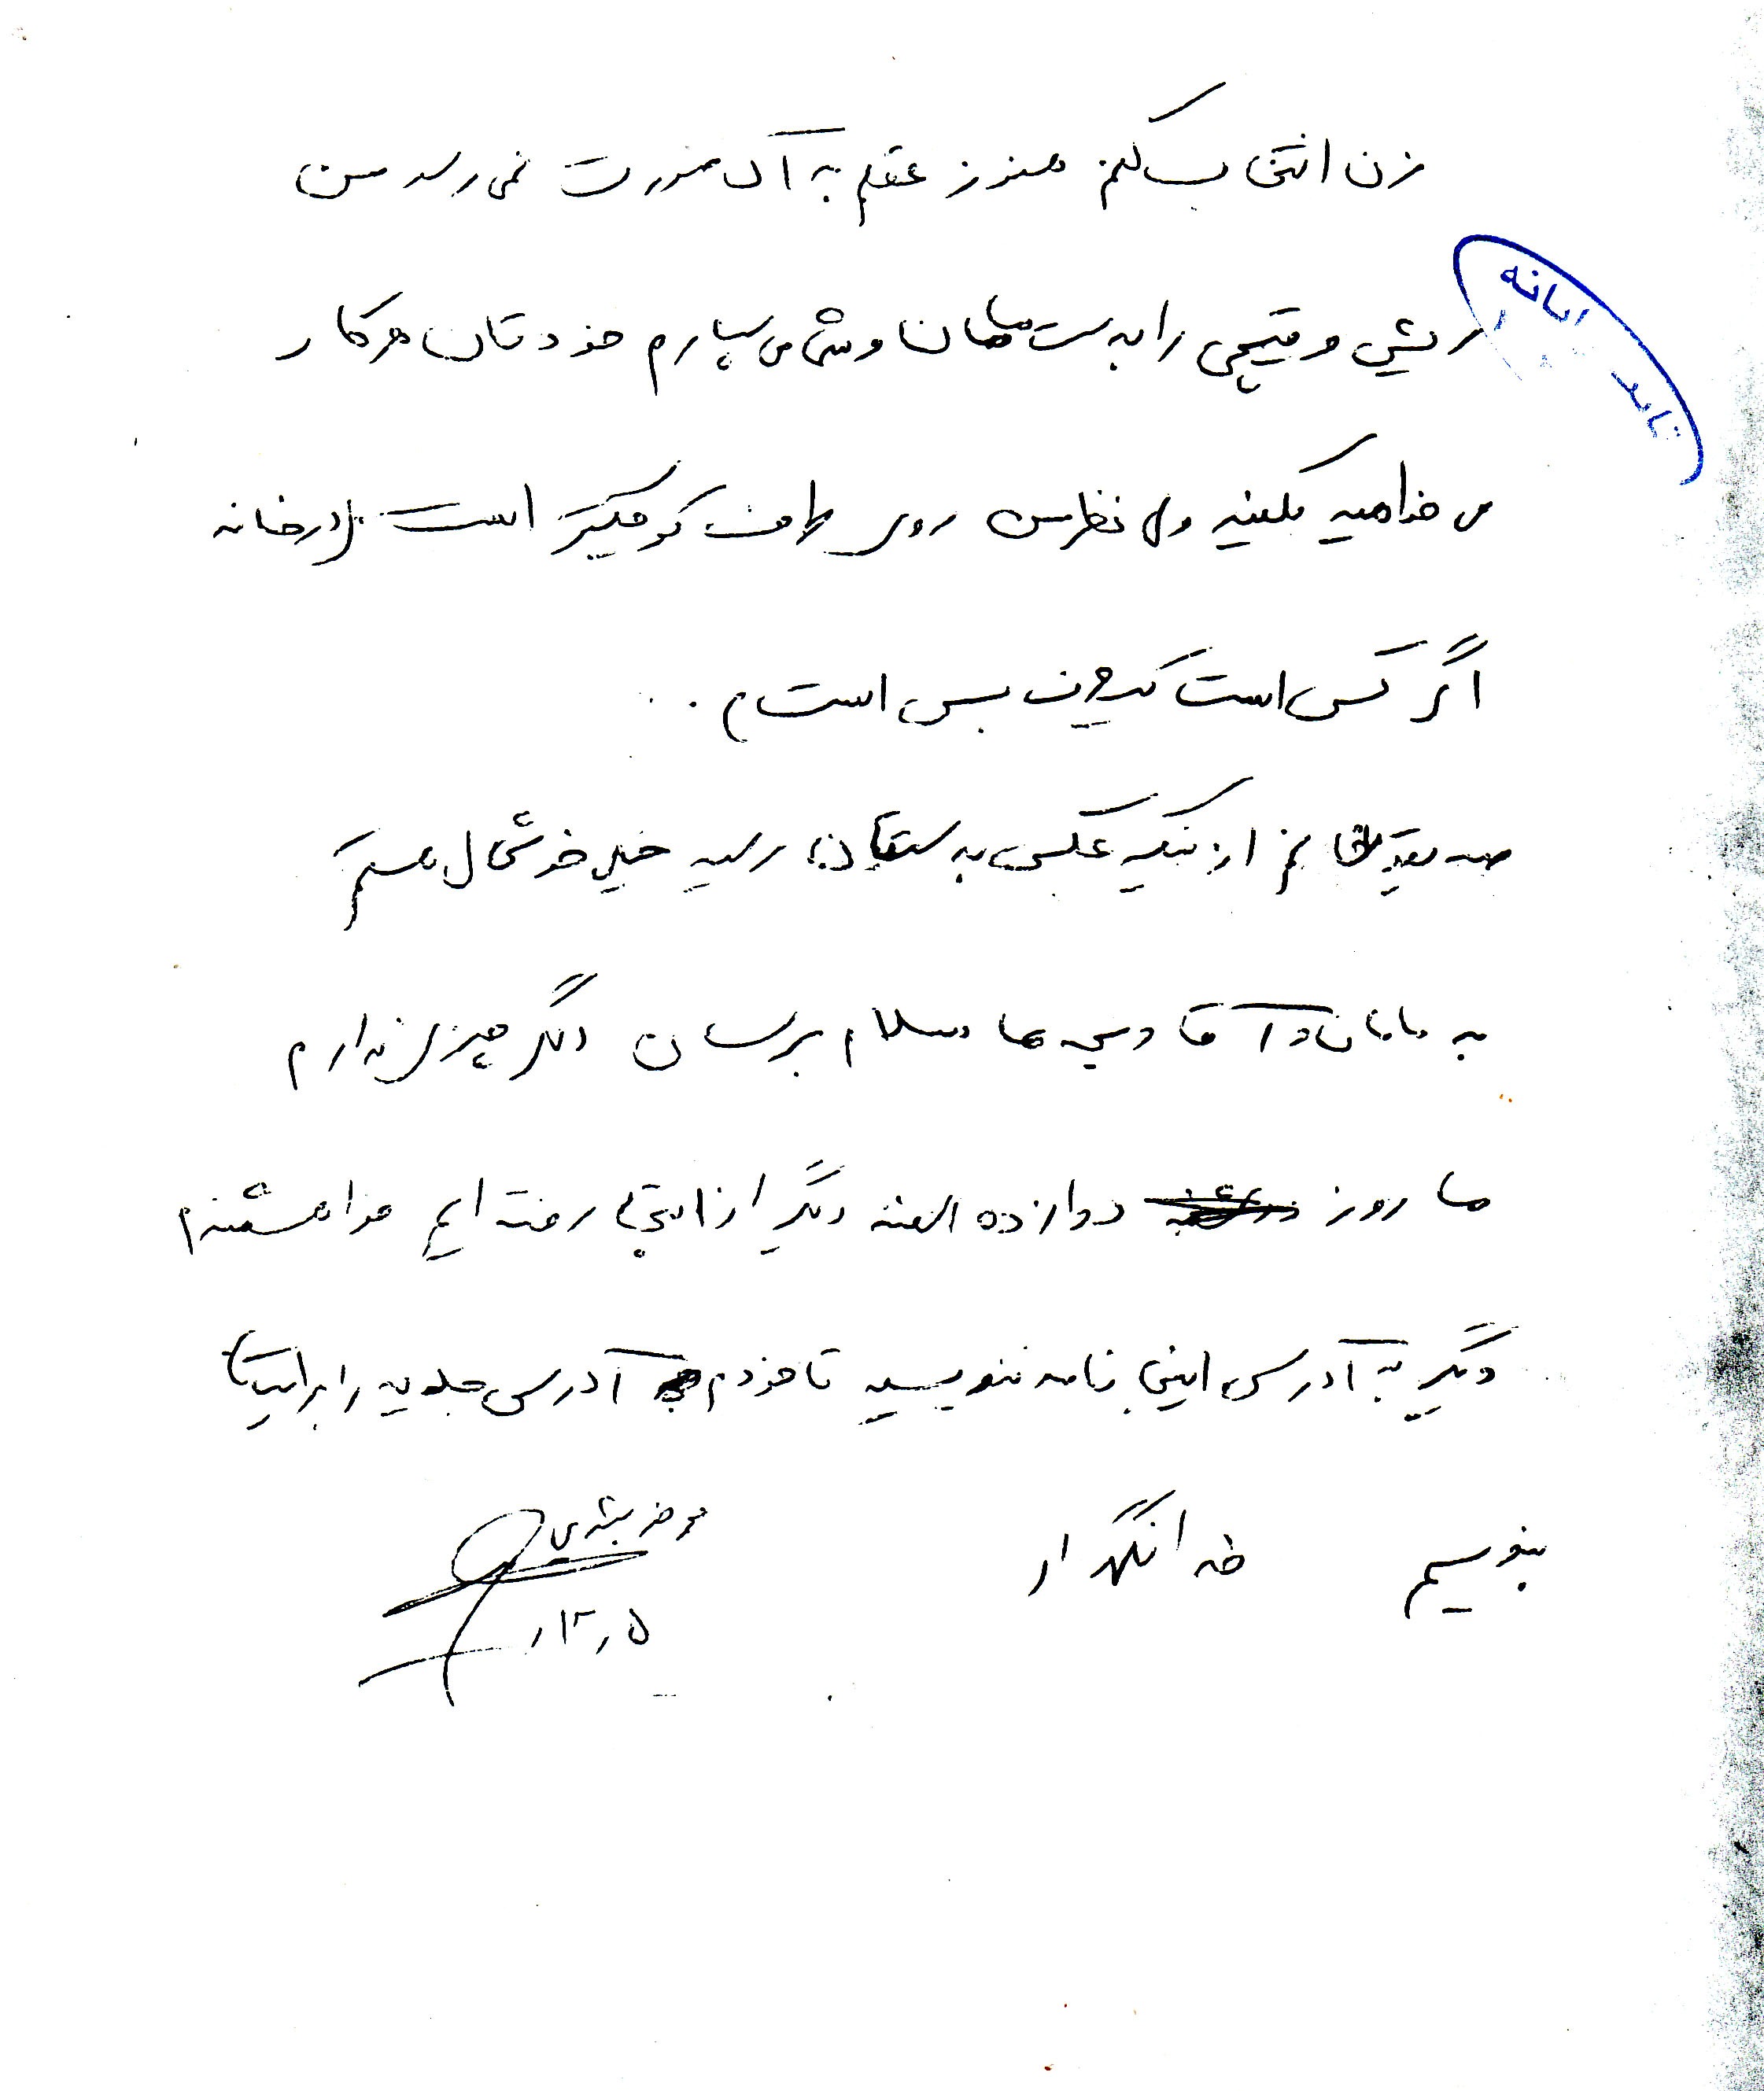 زن انتخاب کنم هنوز عقلم به آن صورت نمی رسد من
ریش و قیچی را به دست مامان و شما می سپارم خودتان هر کار
می خواهید بکنید ولی نظر من روی طرف کوچکتر است (در خانه
اگر کس است یک حرف بس است) .
صدیقه خانم از اینکه عکس به دستتان رسید خیلی خوشحال هستم
به مامان و آقا و بچه ها سلام برسان دیگر چیزی ندارم
ما روز دوازده اسفند دیگر از اینجا رفته ایم خواهشمندم
دیگر به آدرس اینجا نامه ننویسید تا خودم آدرس جدید را برایتان
بنویسم خدانگهدار
۵ ر ۱۲ ر